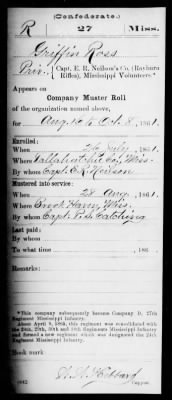 (Confederate.)
R 27 Miss.
Griffin Ross
Priv., Capt. E. R. Neilson's Co. (Rayburn Rifles), Mississippi Volunteers.*
Appears on
Company Muster Roll
of the organization named above,
for Aug. 16 to Oct. 8, 1861.
Enrolled:
When 26 July, 1861.
Where Tallahatchie Co., Miss.
By whom Capt. E. R. Neilson
Mustered into service:
When 28 Aug, 1861.
Where Brook Haven, Miss.
By whom Capt. Catchings
Last paid:
By whom
To what time , 186 .
Remarks:
*This company subsequently became Company D, 27th
Regiment Mississippi Infantry.
About April 9, 1865, this regiment was consolidated with
the 24th, 29th, 30th and 34th Mississippi Infantry
and formed a new regiment which was designated the 24th
Regiment Mississippi Infantry.
Book mark:
(642)
Copyist.